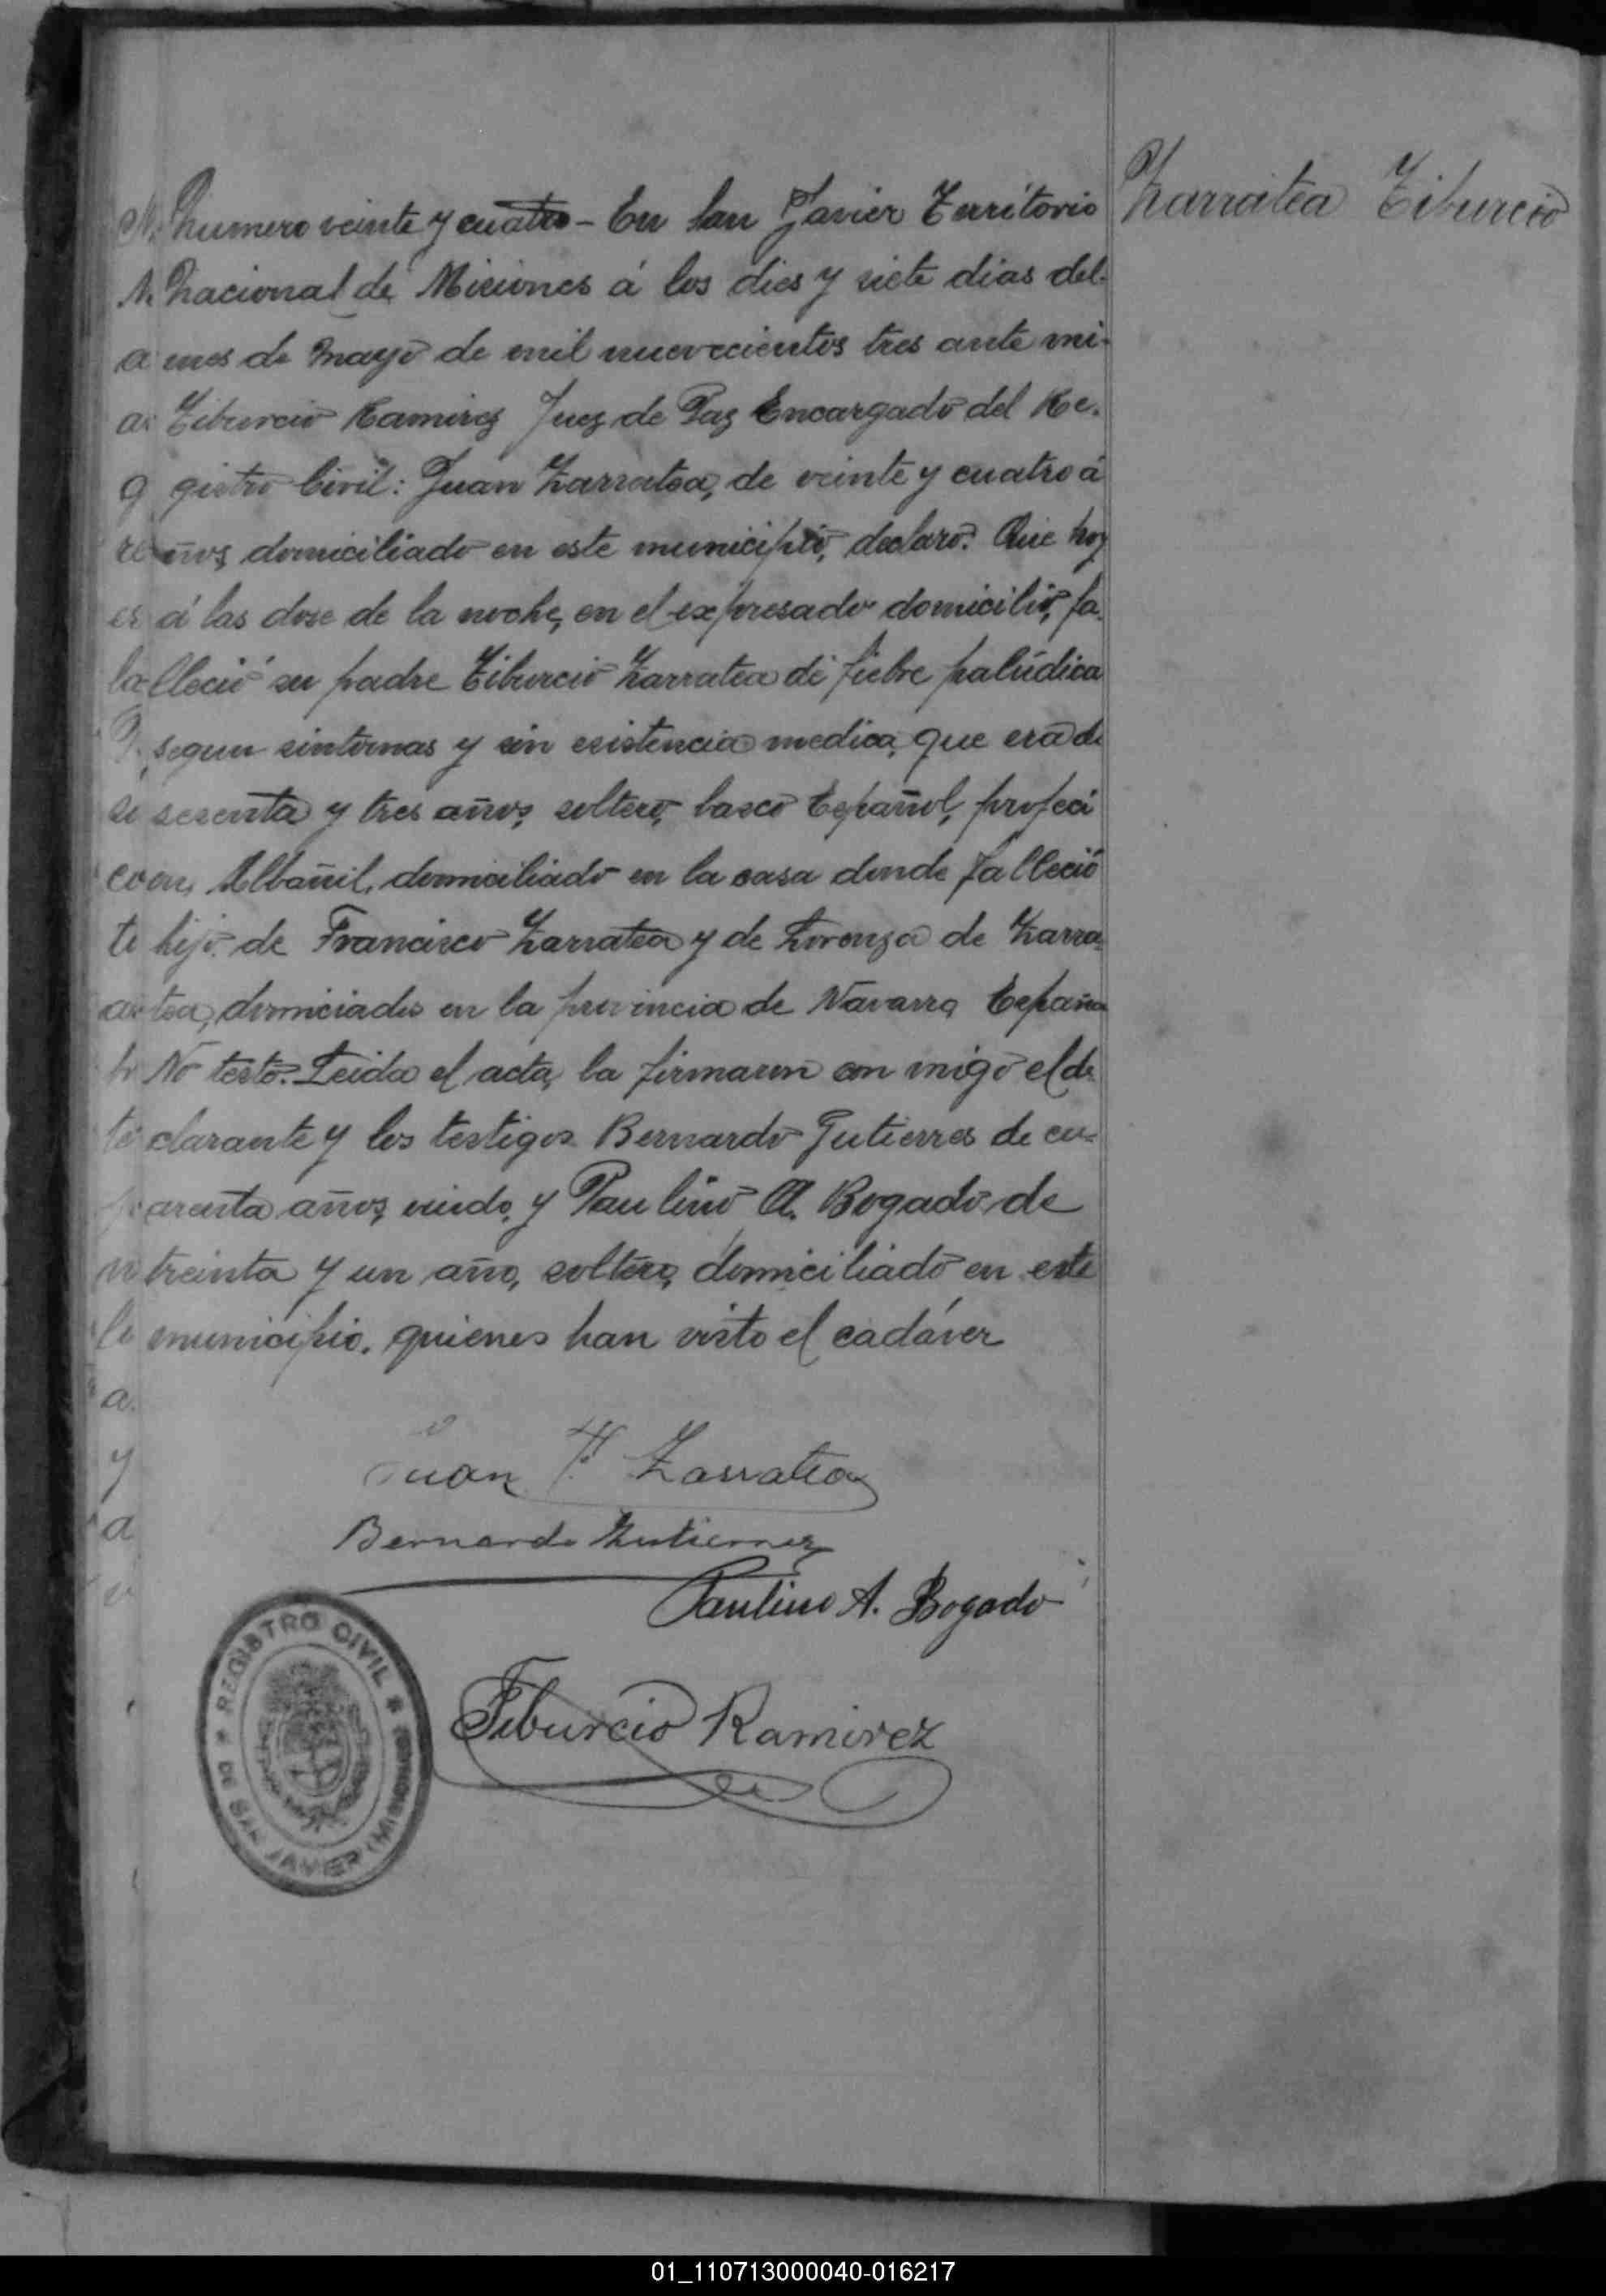 Zarratea Tiburcio
Numero veinte y cuatro – En San Javier Territorio
Nacional de Misiones á los dies y siete dias del
mes de Mayo de mil nuevecientos tres ante mi
Tiburcio Ramirez Juez de Paz Encargado del Re-
gistro Civil: Juan Zarratea, de veinte y cuatro a
ños, domiciliado en este municipio, declaró: Que hoy
á las dose de la noche, en el expresado domicilio, fa-
lleció su padre Tiburcio Zarratea de fiebre palúdica
segun sintomas y sin esistencia medica, que era de
sesenta y tres años, soltero, basco Español, profeci
on, Albañil, domiciliado en la casa donde falleció
hijo de Francisco Zarratea y de Lorenza de Zarra-
tea, domiciados en la provincia de Navarra España
No testó. Leida el acta, la firmaron con migo el de
clarante y los testigos Bernardo Gutierres de cu-
arenta años, viudo, y Paulino A. Bogado de
treinta y un año, soltero, domiciliado en este
municipio. quienes han visto el cadáver
a
y
a
Juan Zarratea
Bernardo Gutierrez
Paulino A. Bogado
Tiburcio Ramirez
REGISTRO CIVIL
DE SAN JAVIER (MISIONES)
01_110713000040-016217